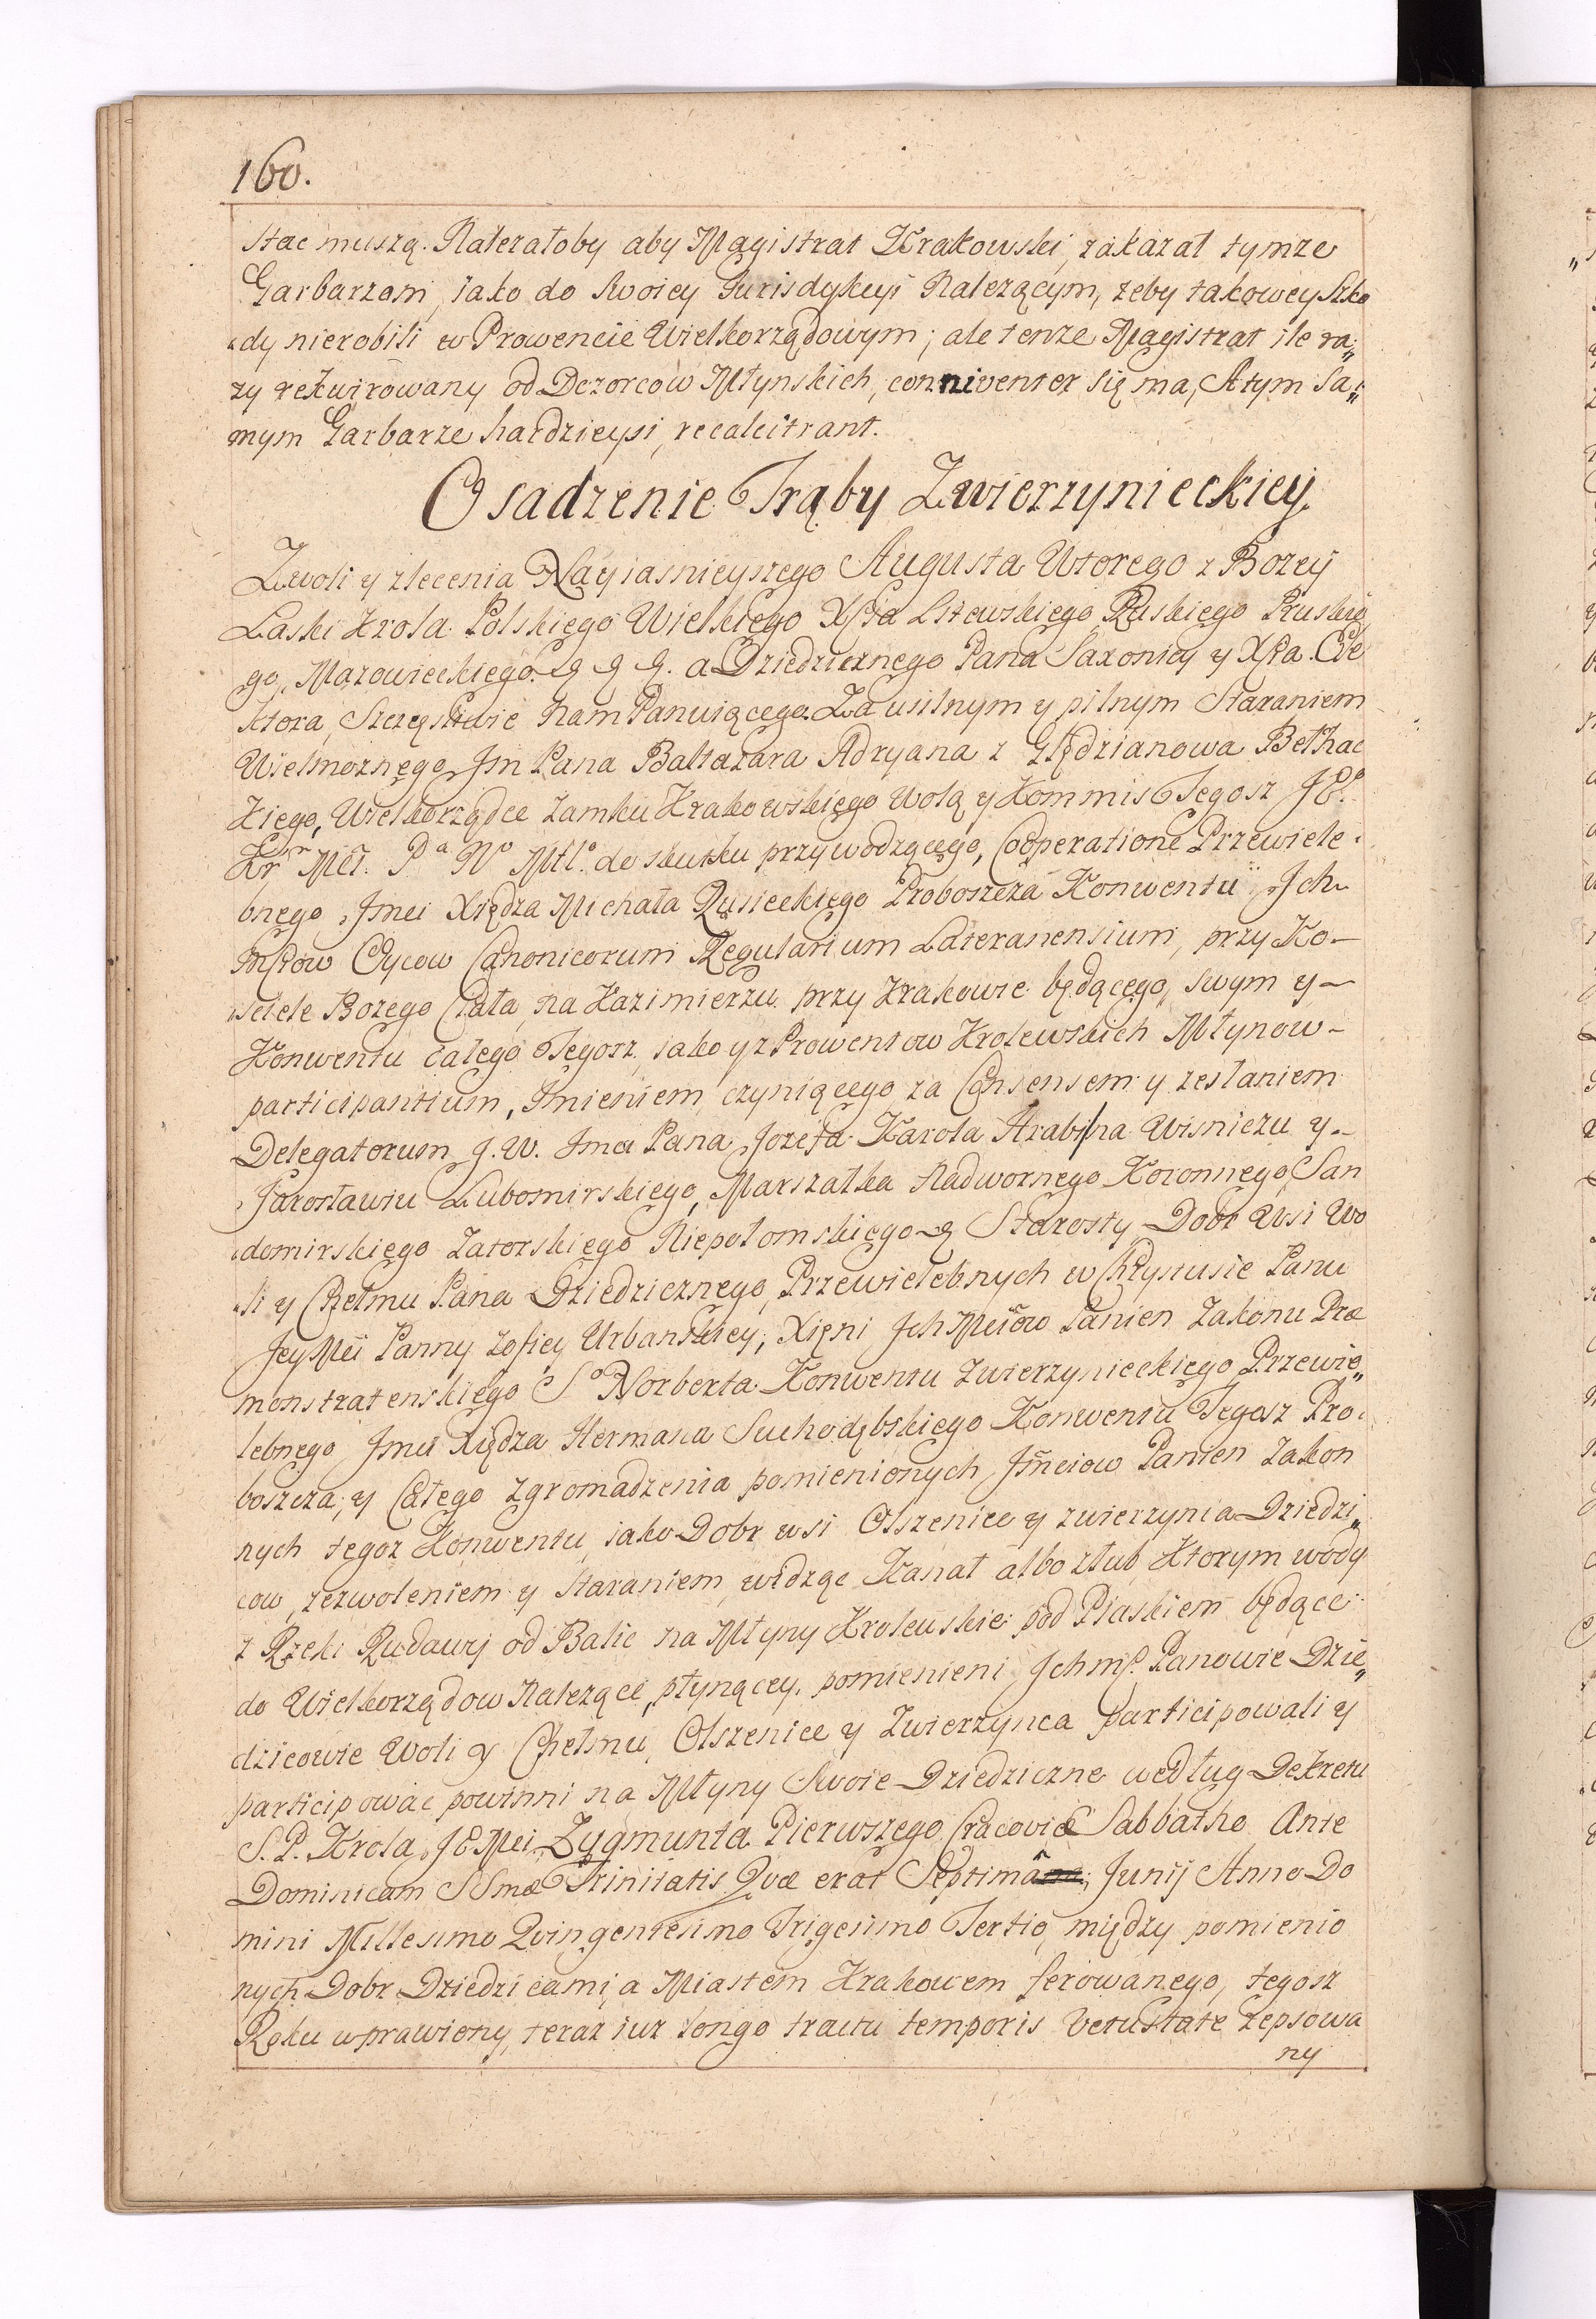 160.
stac muszą. Nalezałoby aby Magistrat Krakowski, zakazał tymze
Garbarzom, iako do Swoiey Jurisdykcyi Nalezącym, zeby takowey Szko
„dy nierobili w Prowencie Wielkorządowym; ale tenze Magistrat ile ra„
zy rekwirowany od Dozorcow Młynskich, conniventer się ma, A tym Sa„
mym Garbarze hardzieysi, recalcitrant.
Osadzenie Trąby Zwierzynieckiey.
Zwoli y zlecenia Nayiasnieyszego Augusta Wtorego z Bozey
Łaski Krola Polskiego Wielkiego Xsta Litewskiego Ruskiego Pruskie
go, Mazowieckiego & & &. a Dziedzicznego Pana Saxoniey y Xsta. Ele
ktora, Szczęsliwie Nam Panuiącego. Za usilnym y pilnym Staraniem
Wielmoznego Jm Pana Baltazara Adryana z Głędzianowa Bethac
kiego, Wielkorządce Zamku Krakowskiego Wolą y Kommis Tegosz JE.
Kr Mci. P N Mtl. do skutku przywodzącego, Cooperatione Przewiele
bnego Jmci Xiędza Michała Rusieckiego Proboszcza Konwentu Jch
Mciow Oycow Canonicorum Regularium Lateranensium, przy Ko–
„sciele Bozego Ciała, na Kazimierzu przy Krakowie będącego, swym y –
Konwentu całego Tegosz, iako y z Prowentow Krolewskich Młynow –
participantium, Imieniem, czyniącego za Consensem y zesłaniem
Delegatorum J. W. Jmci Pana Jozefa Karola Hrabi/na Wisniczu y –
Jarosławiu Lubomirskiego, Marszałka Nadwornego Koronnego, San
„domirskiego Zatorskiego Niepołomskiego & Starosty Dobr Wsi Wo
„li y Chełmu Pana Dziedzicznego, Przewielebnych w Chrystusie Panu
Jey Mci Panny Zofiey Urbanskiey, Xięni Jch Mciow Panien Zakonu Præ
monstratenskiego So Norberta Konwentu Zwierzynieckiego Przewie„
lebnego Jmci Xiędza Hermana Suchodębskiego Konwentu Tegosz Pro
boszcza, y Całego Zgromadzenia pomienionych Jmciow Panien Zakon
nych tegoz Konwentu, iako Dobr wsi Olszenice y zwierzynca Dziedzi„
cow, zezwoleniem y staraniem, widząc Kanał albo złub, Ktorym wody
z Rzeki Rudawy od Balic na Młyny Krolewskie pod Piaskiem będące
do Wielkorządow Nalezące, płynącey, pomienieni Jchmc. Panowie Dzie„
dzicowie Woli y Chełmu, Olszenice y Zwierzynca participowali y
participowac powinni na Młyny Swoie Dziedziczne według Dekretu
S. P. Krola JE Mci Zygmunta Pierwszego Cracoviæ Sabbatho Ante
Dominicam SSmæ Trinitatis Qvæ erat Septimâ Junij Anno Do
mini Millesimo Qvingentesimo Trigesimo Tertio, między pomienio
nych Dobr Dziedzicami, a Miastem Krakowem ferowanego, tegosz
Roku wprawiony, teraz iuz longo tractu temporis Vetustate Zepsowa
ny